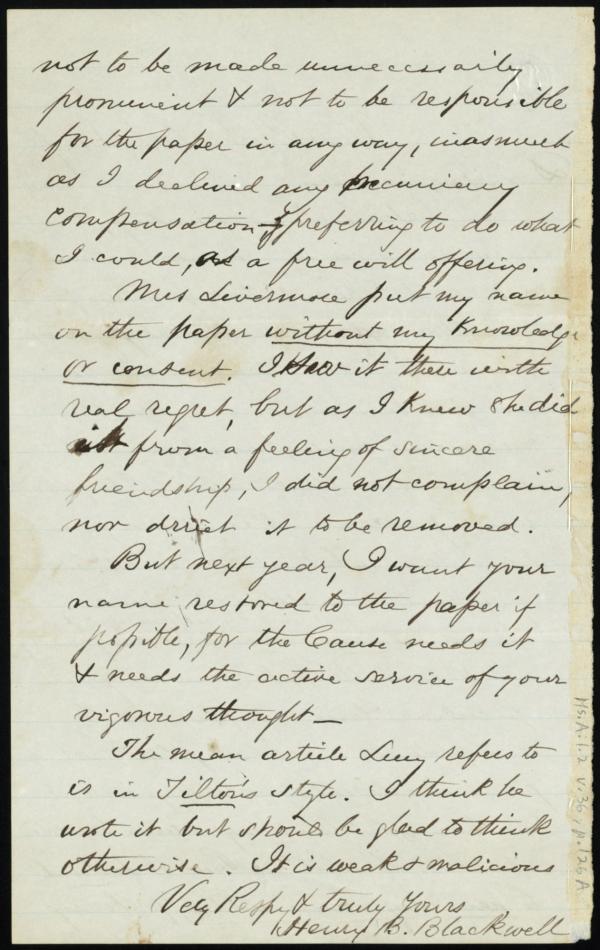 not to be made unnecessarily
prominent & not to be responsible
for the paper in any way, inasmuch
as I declined any pecuniary
compensation preferring to do what
I could, as a free will offering.
Mrs Livermore put my name
on the paper without my knowledge
or consent. I saw it there with
real regret, but as I knew she did
it from a feeling of sincere
friendship, I did not complain,
nor direct it to be removed.
But next year, I want your
name restored to the paper if
possible, for the Cause needs it
& needs the active service of your
vigorous thought—
The mean article Lucy refers to
is in Tilton's style. I think he
wrote it but should be glad to think
otherwise. It is weak & malicious
Very Respy & truly yours
Henry B. Blackwell
Ms.A.1.2 v.36, p.126A